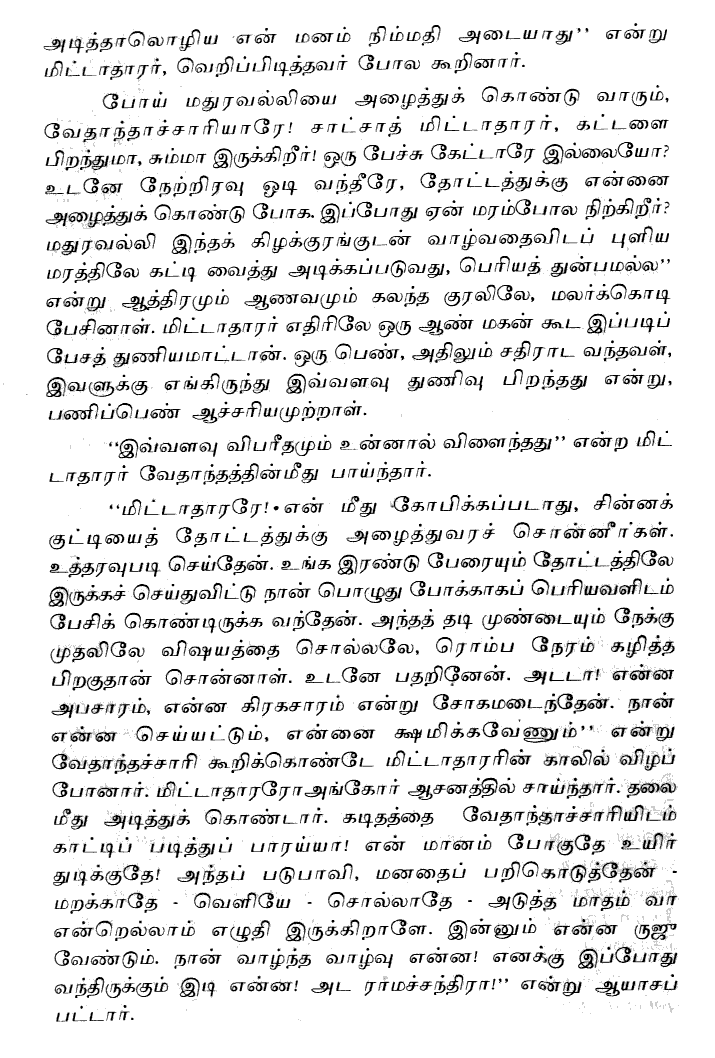 அடித்தாலொழிய என் மனம் நிம்மதி அடையாது'' என்று
மிட்டாதாரர், வெறிப்பிடித்தவர் போல கூறினார்.
போய் மதுரவல்லியை அழைத்துக் கொண்டு வாரும்,
வேதாந்தாச்சாரியாரே! சாட்சாத் மிட்டாதாரர், கட்டளை
பிறந்துமா, சும்மா இருக்கிறீர்! ஒரு பேச்சு கேட்டாரே இல்லையோ?
உடனே நேற்றிரவு ஒடி வந்தீரே, தோட்டத்துக்கு என்னை
அழைத்துக் கொண்டு போக. இப்போது ஏன் மரம்போல நிற்கிறீர்?
மதுரவல்லி இந்தக் கிழக்குரங்குடன் வாழ்வதைவிடப் புளிய
மரத்திலே கட்டி வைத்து அடிக்கப்படுவது, பெரியத் துன்பமல்ல''
என்று ஆத்திரமும் ஆணவமும் கலந்த குரலிலே, மலர்க்கொடி
பேசினாள். மிட்டாதாரர் எதிரிலே ஒரு ஆண் மகன் கூட இப்படிப்
பேசத் துணியமாட்டான். ஒரு பெண், அதிலும் சதிராட வந்தவள்,
இவளுக்கு எங்கிருந்து இவ்வளவு துணிவு பிறந்தது என்று,
பணிப்பெண் ஆச்சரியமுற்றாள்.
''இவ்வளவு விபரீதமும் உன்னால் விளைந்தது'' என்ற மிட்
டாதாரர் வேதாந்தத்தின்மீது பாய்ந்தார்.
''மிட்டாதாரரே! என் மீது கோபிக்கப்படாது, சின்னக்
குட்டியைத் தோட்டத்துக்கு அழைத்துவரச் சொன்னீர்கள்.
உத்தரவுபடி செய்தேன். உங்க இரண்டு பேரையும் தோட்டத்திலே
இருக்கச் செய்துவிட்டு நான் பொழுது போக்காகப் பெரியவளிடம்
பேசிக் கொண்டிருக்க வந்தேன். அந்தத் தடி முண்டையும் நேக்கு
முதலிலே விஷயத்தை சொல்லலே, ரொம்ப நேரம் கழித்த
பிறகுதான் சொன்னாள். உடனே பதறினேன். அடடா! என்ன
அபசாரம், என்ன கிரகசாரம் என்று சோகமடைந்தேன். நான்
என்ன செய்யட்டும், என்னை க்ஷமிக்கவேணும்'' என்று
வேதாந்தச்சாரி கூறிக்கொண்டே மிட்டாதாரரின் காலில் விழப்
போனார். மிட்டாதாரரோஅங்கோர் ஆசனத்தில் சாய்ந்தார். தலை
மீது அடித்துக் கொண்டார். கடிதத்தை வேதாந்தாச்சாரியிடம்
காட்டிப் படித்துப் பாரய்யா! என் மானம் போகுதே உயிர்
துடிக்குதே! அந்தப் படுபாவி, மனதைப் பறிகொடுத்தேன் -
மறக்காதே - வெளியே - சொல்லாதே - அடுத்த மாதம் வா
என்றெல்லாம் எழுதி இருக்கிறாளே. இன்னும் என்ன ருஜு
வேண்டும். நான் வாழ்ந்த வாழ்வு என்ன! எனக்கு இப்போது
வந்திருக்கும் இடி என்ன! அட ரர்மச்சந்திரா!'' என்று ஆயாசப்
பட்டார்.